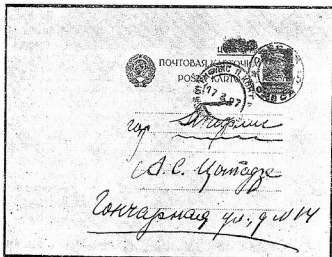 ПОЧТОВАЯ КАРТОЧКА
POŜTA KARTO
гор. Тифлис
А.С. Цотадзе
Гончарная ул., д №14